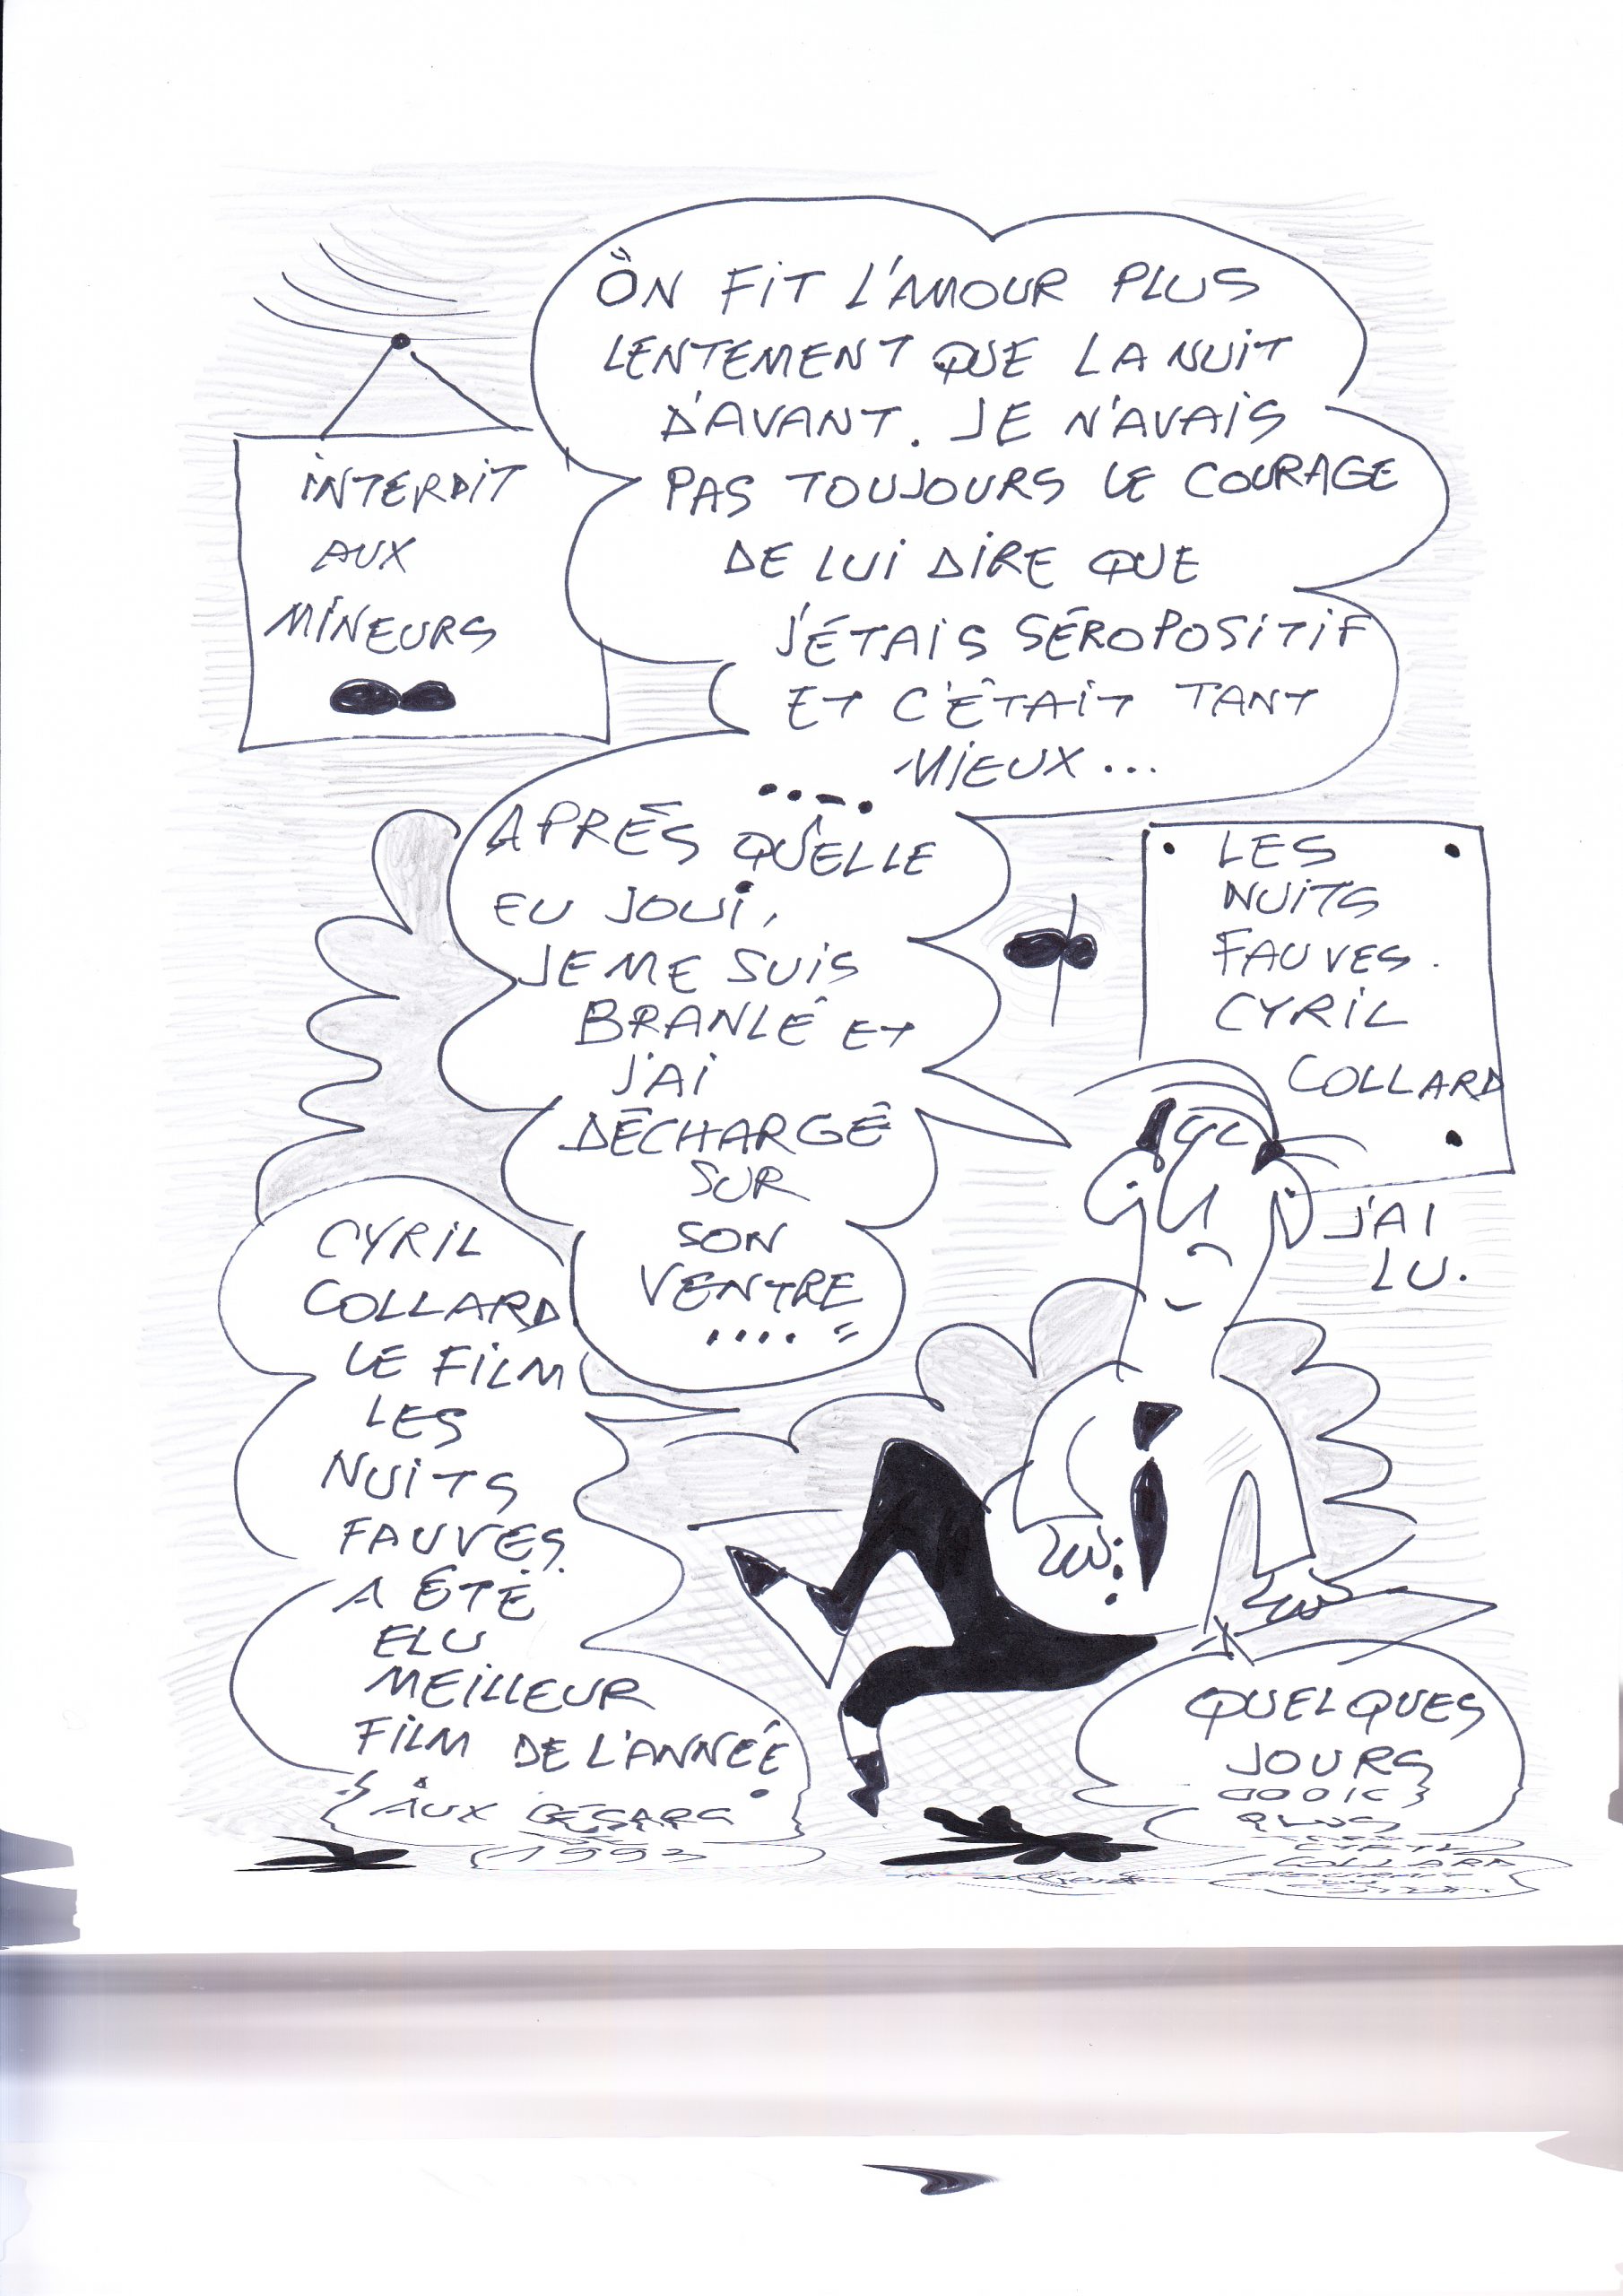 INTERDIT
AUX
MINEURS
ON FIT L'AMOUR PLUS
LENTEMENT QUE LA NUIT
D'AVANT. JE N'AVAIS
PAS TOUJOURS LE COURAGE
DE LUI DIRE QUE
J'ÉTAIS SÉROPOSITIF
ET C'ÊTAIT TANT
MIEUX...
....
APRÉS QU'ELLE
EU JOUI,
JE ME SUIS
BRANLÉ ET
J'AI
DÉCHARGÉ
SUR
SON
VENTRE
....
LES
NUITS
FAUVES.
CYRIL
COLLARD
J'AI
LU.
CYRIL
COLLARD
LE FILM
LES
NUITS
FAUVES.
A ÉTÉ
ELU
MEILLEUR
FILM DE L'ANNÉE
AUX CÉSARS
1993
QUELQUES
JOURS
PLUS
CYRIL
COLLARD